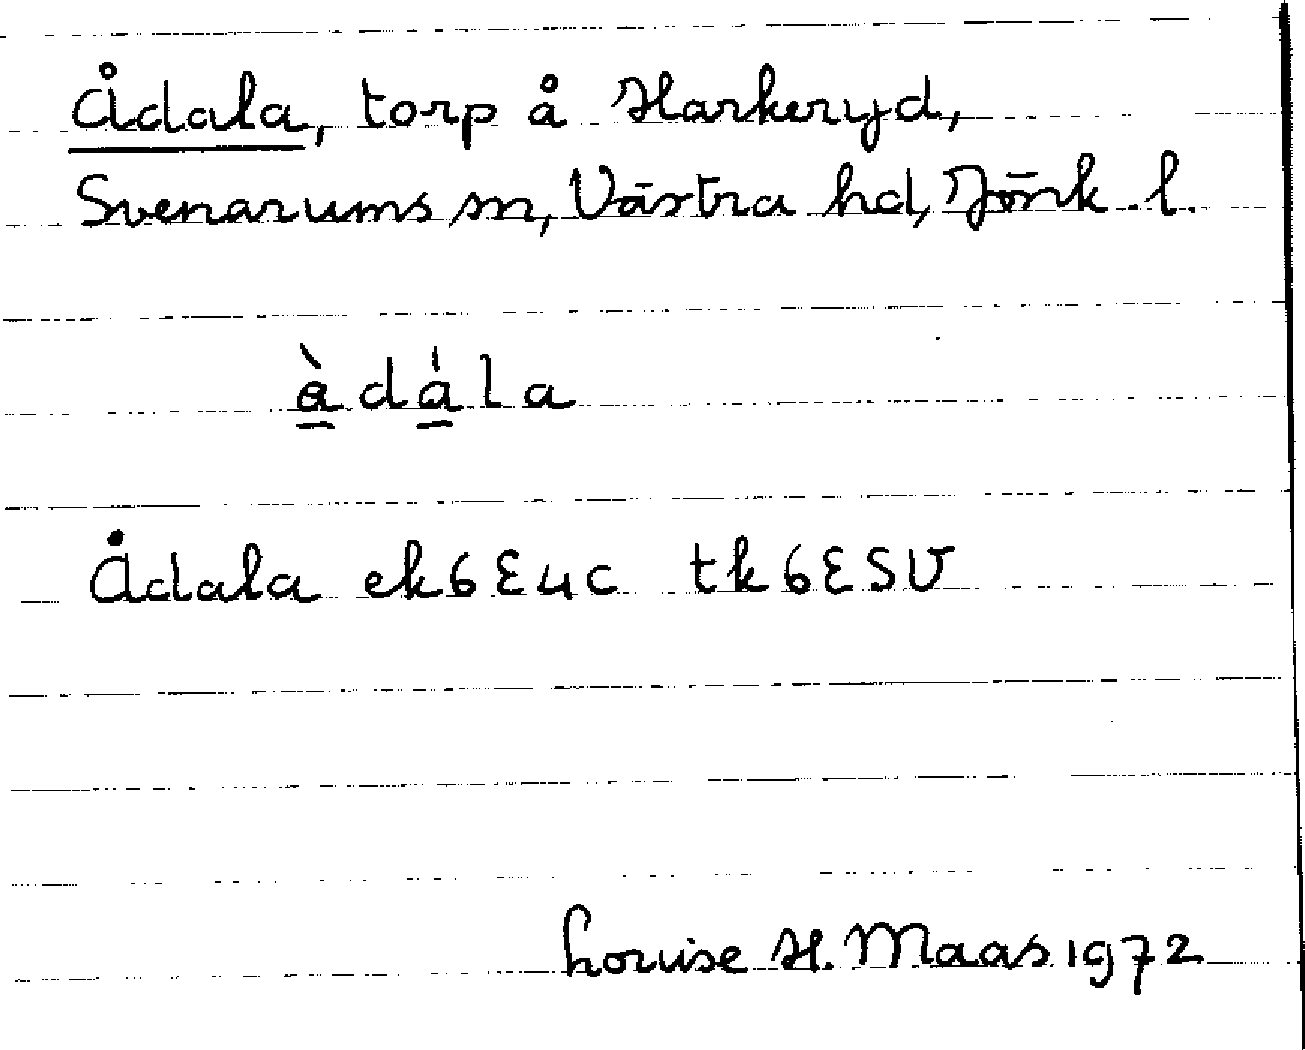 Ådala, torp å Harkeryd,
Svenarums sn, Västra hd, Jönk. l.
àdála
Ådala ek6E4c tk6E5U
Louise H. Maas 1972